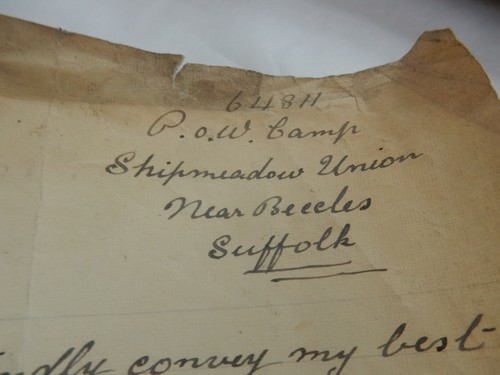 64811
P.O.W. Camp
Shipmeadow Union
Near Beccles
Suffolk
convey my best